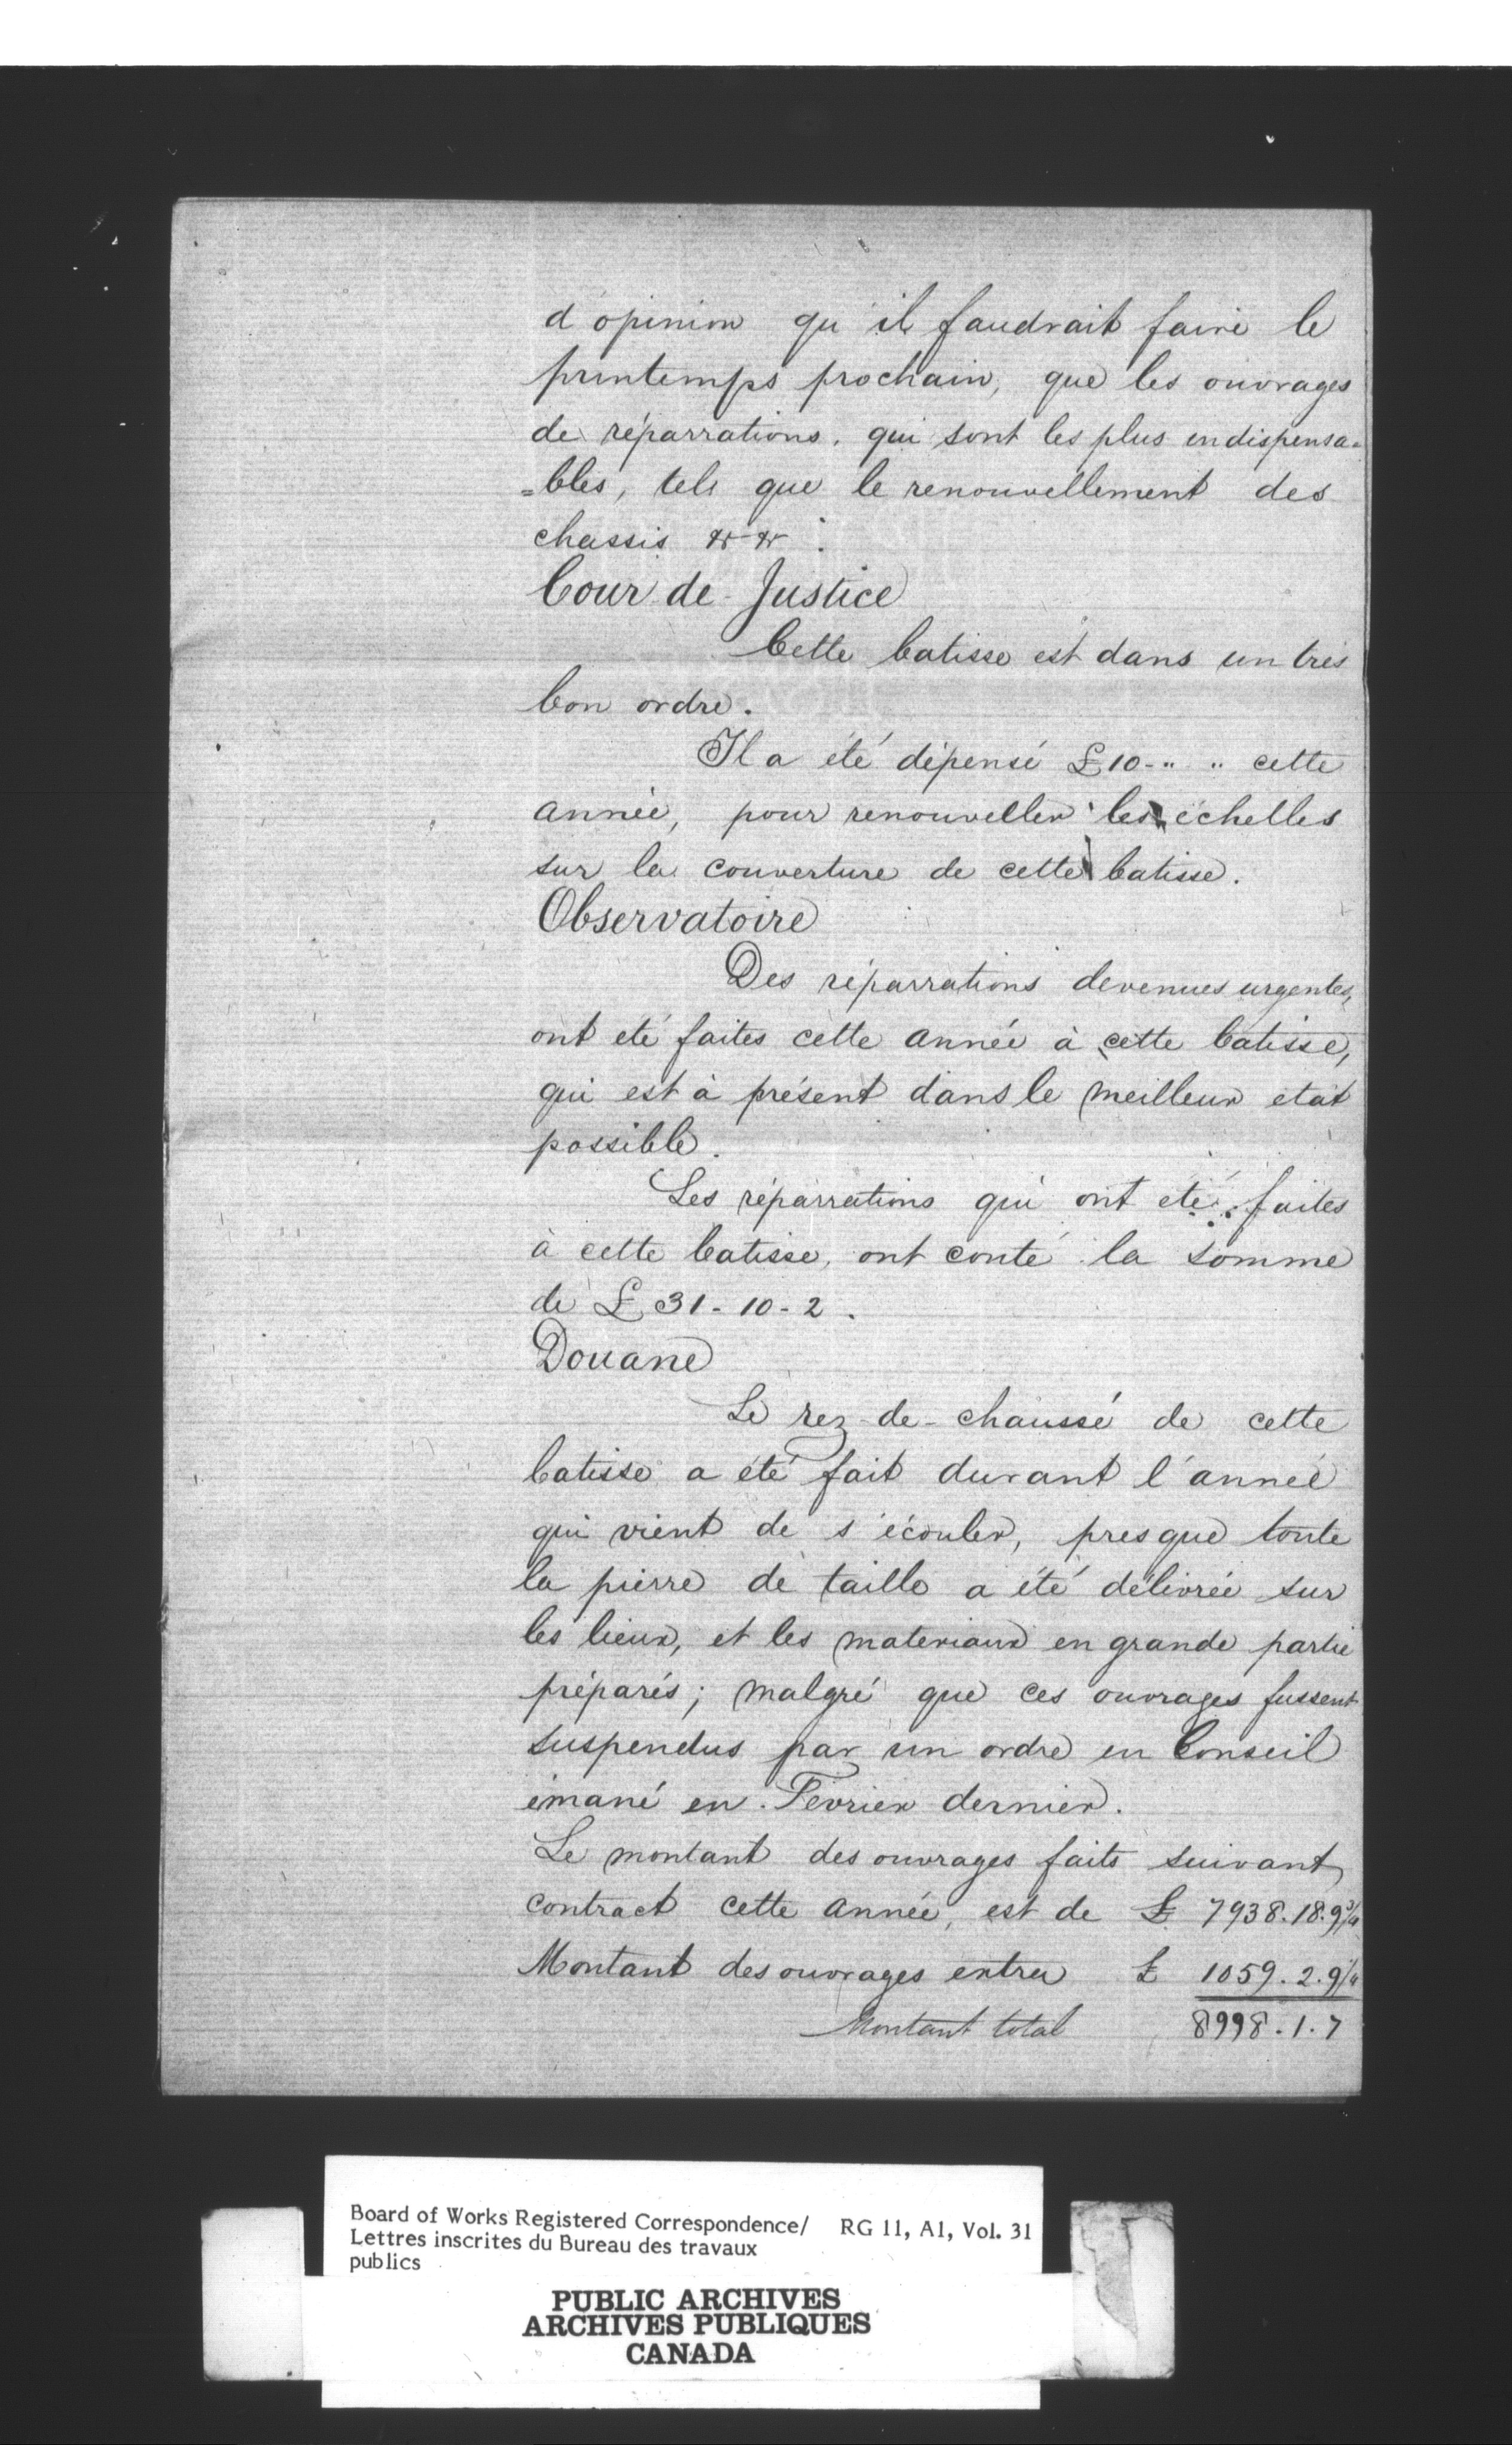 d'opinion qu'il faudrait faire le
printemps prochain, que les ouvrages
de réparrations, qui sont les plus indispensa=
=bles, tels que le renouvellement des
chassis & &.
Cour de Justice
Cette batisse est dans un très
bon ordre.
Il a été dépensé £10-" " cette
année, pour renouveller les échelles
sur la couverture de cette batisse.
Observatoire
Des réparrations devenues urgentes,
ont eté faites cette année à cette batisse,
qui est à présent dans le meilleur etat
possible.
Les réparrations qui ont eté faites
à cette batisse, ont couté la somme
de £31-10-2.
Douane
Le rez-de-chaussé de cette
batisse a été fait durant l'année
qui vient de s'écouler, presque toute
la pierre de taille a été délivrée sur
les lieux, et les materiaux en grande partie
préparés; malgré que ces ouvrages fussent
suspendus par un ordre en Conseil
émané en Fevrier dernier.
Le montant des ouvrages faits suivant
contract cette année, est de £ 7938.18.9¾
Montant des ouvrages extra £ 1059.2.9¼
Montant total 8998.1.7
Board of Works Registered Correspondence/ RG 11, A1, Vol. 31
Lettres inscrites du Bureau des travaux
publics
PUBLIC ARCHIVES
ARCHIVES PUBLIQUES
CANADA